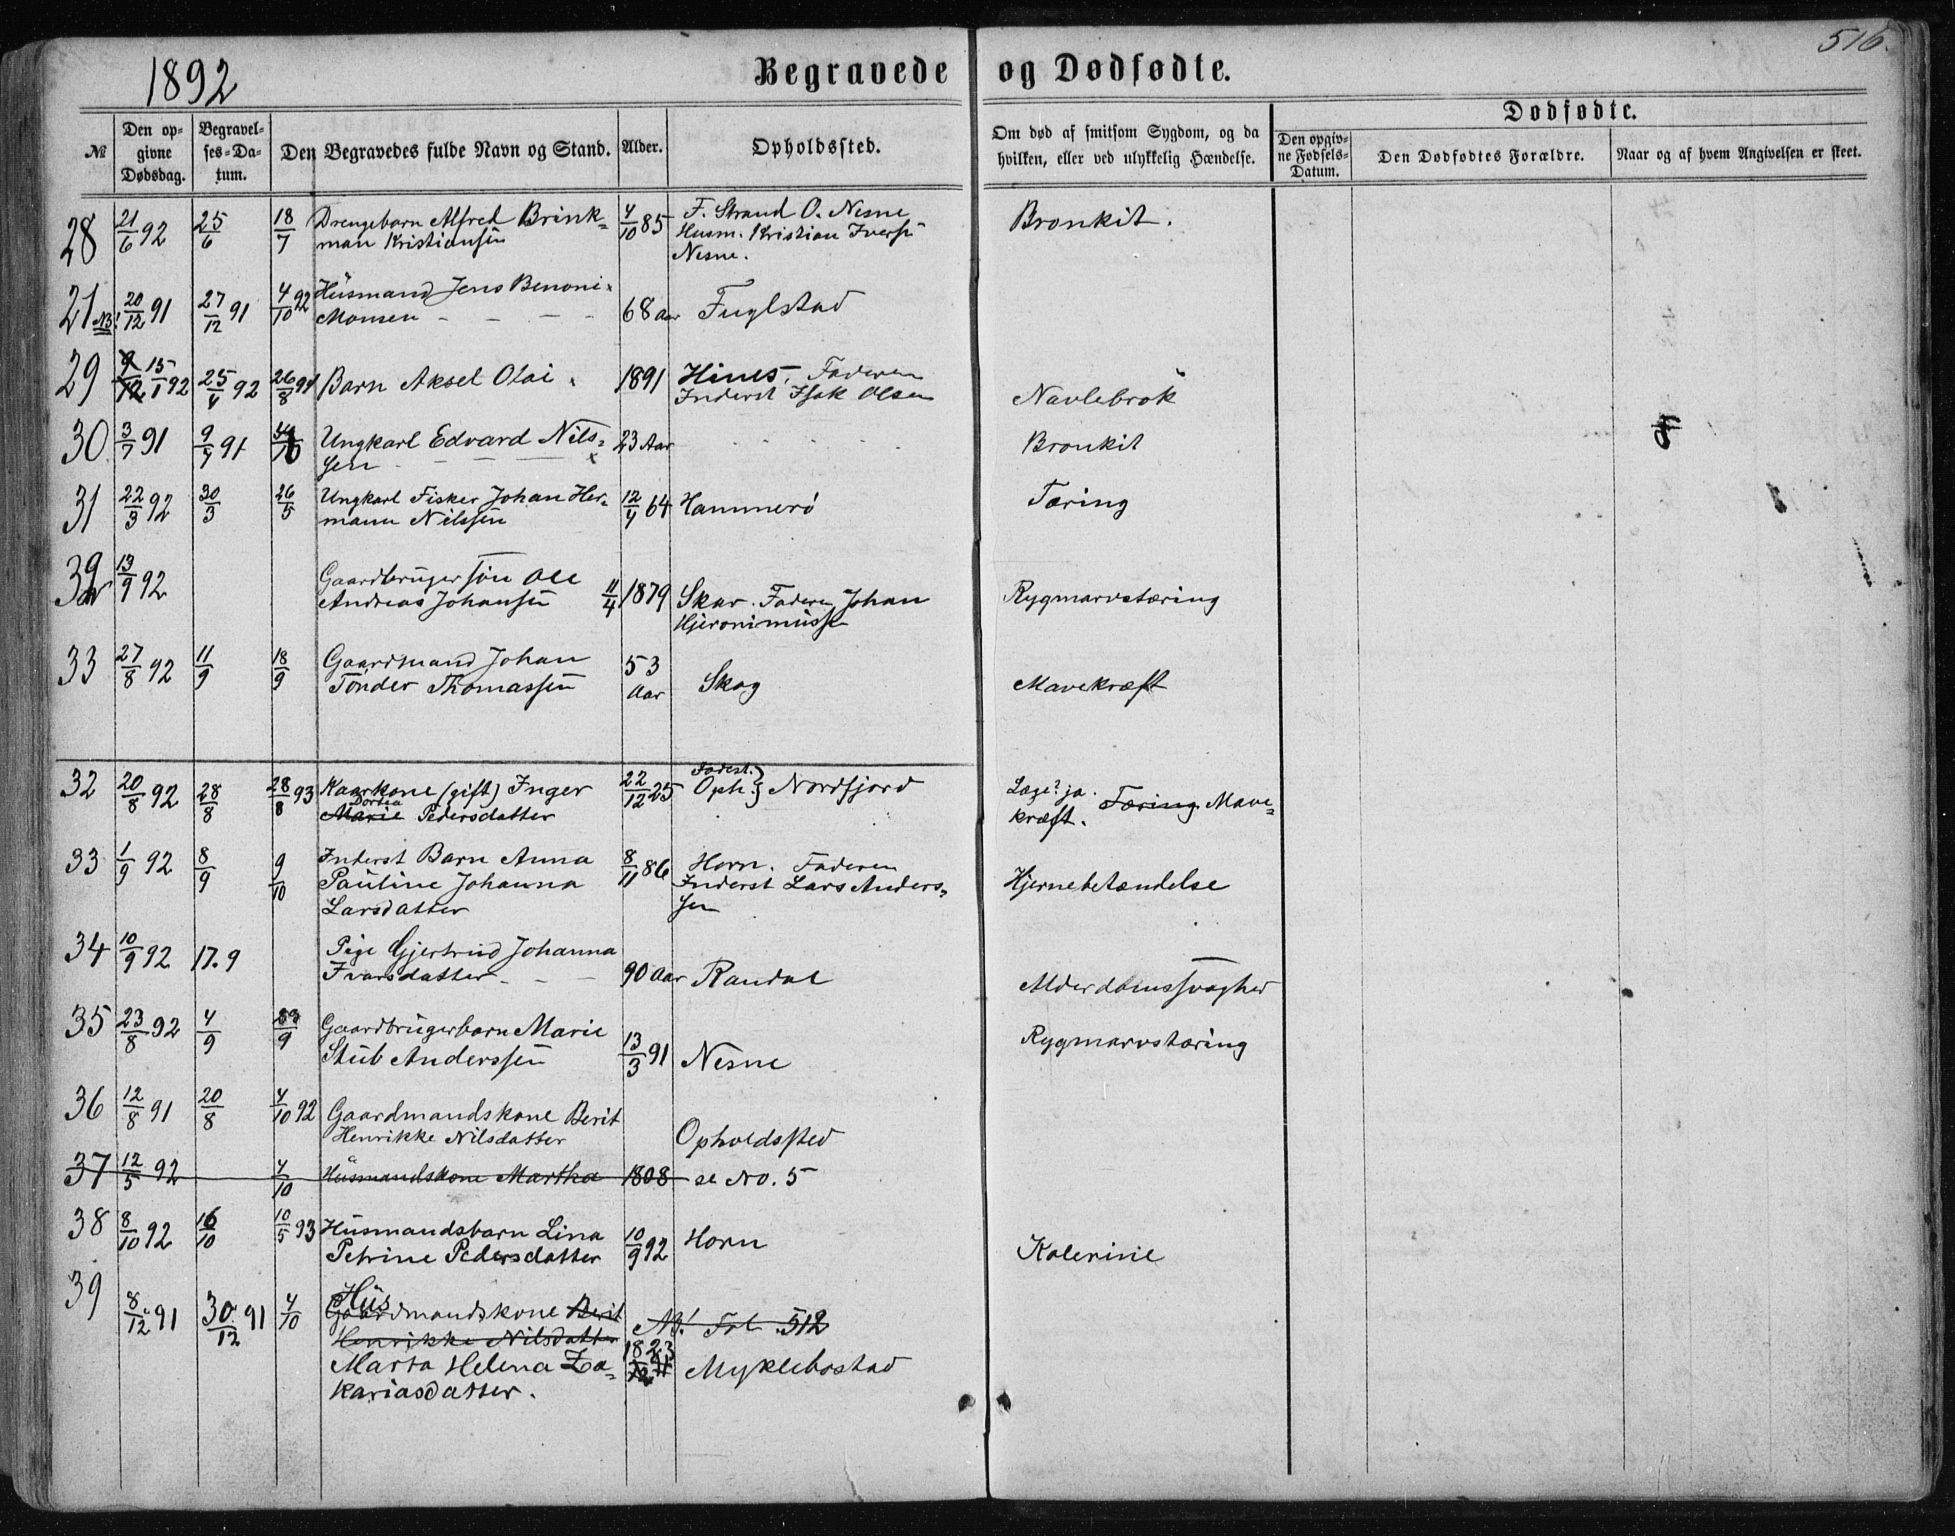 516.
1892
Begravede og Dødfødte.
№
Den opgivne Dødsdag.
Begravelses-Datum.
Den Begravedes fulde Navn og Stand.
Alder.
Opholdssted.
Om død af smitsom Sygdom, og da hvilken, eller ved ulykkelig Hændelse.
Dødfødte.
Den opgivne Fødsels-Datum.
Den Dødfødtes Forældre.
Naar og af hvem Angivelsen er skeet.
28 21/6 92 25/6 18/7 Drengebarn Alfred Brink- 4/10 85 F. Strand O. Nesne Bronkit.
man Kristiansen Husm. Kristian Iversen
Nesne.
21 NB! 20/12 91 27/12 91 4/10 92 Husmand Jens Benoni
Monsen 68 aar Fuglstad
29 15/1 92 25/4 92 26/8 Barn Aksel Olai 1891 Hines, Faderen
Inderst Isak Olsen Navlebrok
30 3/7 91 9/7 91 Ungkarl Edvard Nils- 23 Aar Bronkit
sen
31 22/3 92 30/3 26/5 Ungkarl Fisker Johan Her- 12/4 64 Hammerø Tæring
mann Nilssen
32 13/9 92 Gaardbruger søn Ole
Andreas Johansen 11/4 1879 Skar. Faderen Johan Rygmarvstæring
Hjeronimussen
33 27/8 92 11/9 18/9 Gaardmand Johan 53
Tønder Thomassen Aar Skog Mavekræft
32 20/8 92 28/8 28/8 93 Kaarkone (gift) Inger 22/12 25 Fødest. Oph. } Nordfjord Læge? ja. Tæring Mave-
Dortea
Marie Pedersdatter kræft.
33 1/9 92 8/9 9/10 Inderst Barn Anna 8/11 86 Horn. Faderen
Pauline Johanna Inderst Lars Anders- Hjernebetændelse
Larsdatter sen
34 10/9 92 17.9 Pige Gjertrud Johanna
Ivarsdatter 90 Aar Randal Alderdomssvaghed
35 23/8 92 4/9 Gaardbrugerbarn Marie Rygmarvstæring
Stub Anderssen 13/3 91 Nesne
36 12/8 91 20/8 4/10 92 Gaardmandskone Berit
Henrikke Nilsdatter Opholdssted
37 12/5 92 4/10 Husmandskone Martha 1808 se No. 5
38 8/10 92 16/10 10/5 93 Husmandsbarn Lina 10/9 92 Horn
Petrine Pedersdatter Kolerine
39 8/12 91 30/12 91 4/10 Hus
Gaardmandskone Berit NB! Fol. 512
Henrikke Nilsdatter
Marta Helena Za- 1823 Myklebostad
kariasdatter.